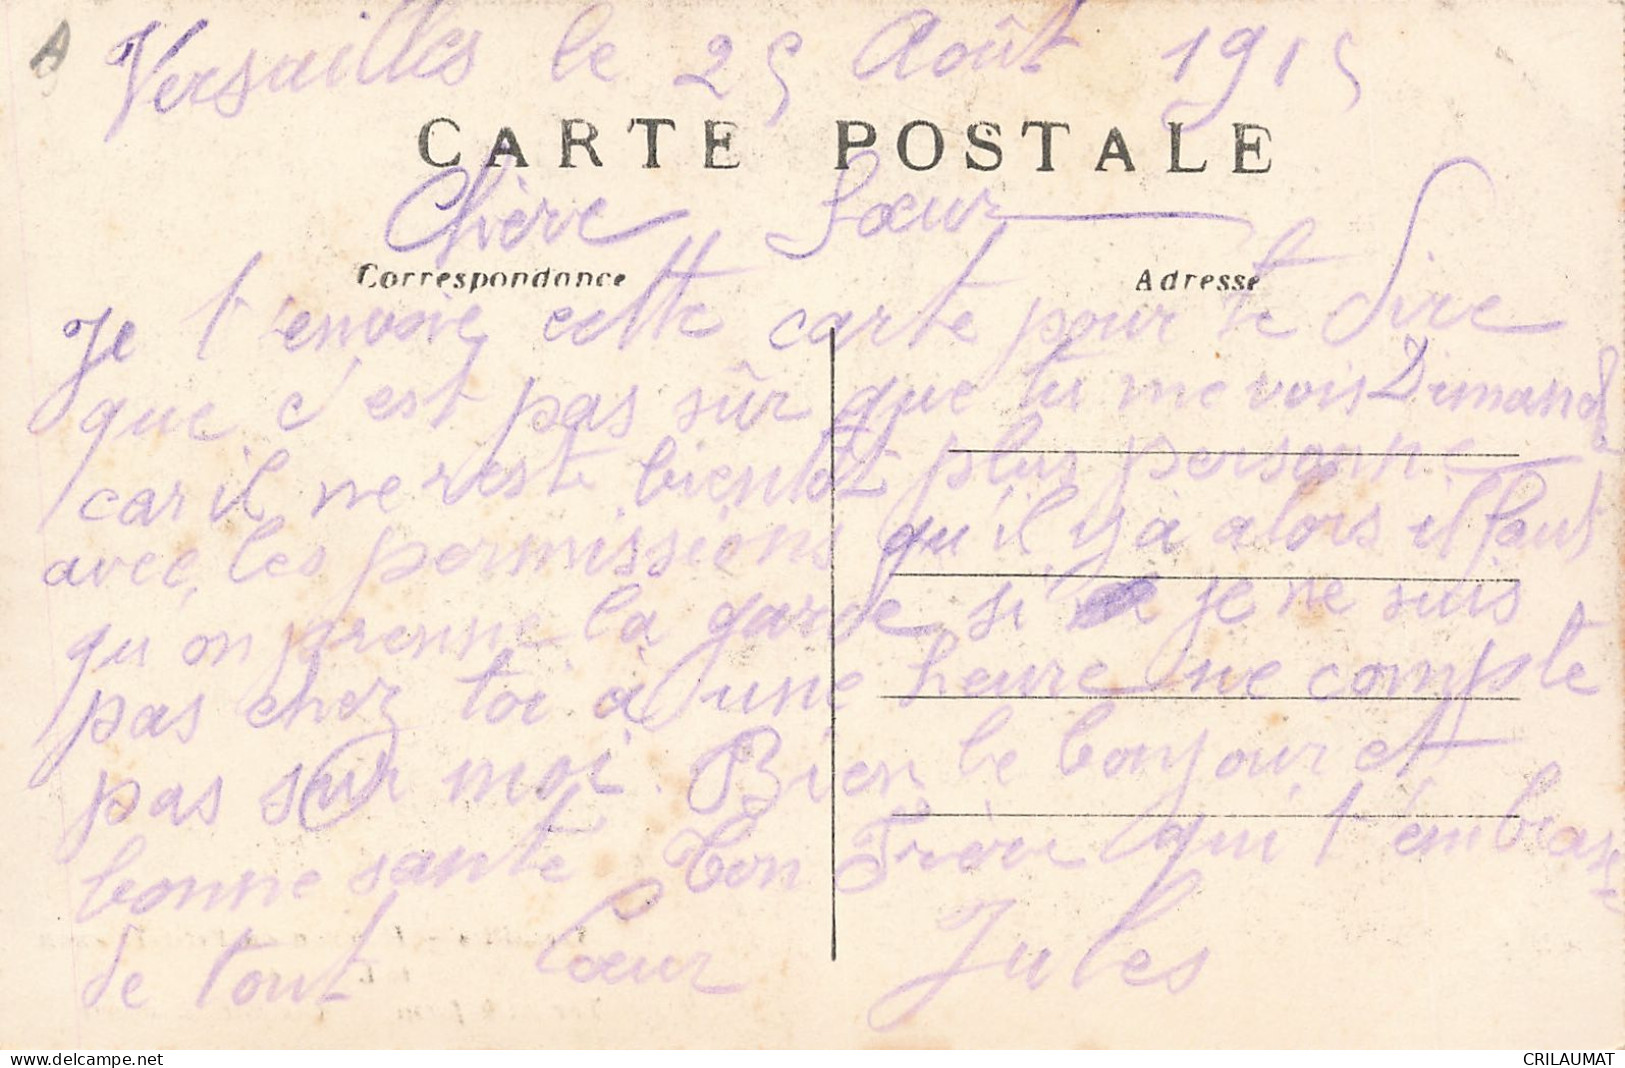 A
Versailles le 25 Août 1915
CARTE POSTALE
Chère Sœur
Correspondance
Adresse
Je t'envoie cette carte pour te dire
que c'est pas sûr que tu me vois Dimanche
car il ne reste bientôt plus personne
avec les permissions qu'il y a alors il faut
qu'on prenne la garde si je ne suis
pas chez toi à une heure ne compte
pas sur moi. Bien le bonjour et
bonne santé Ton Frère qui t'embrasse
de tout Cœur Jules
delcampe.net
CRILAUMAT